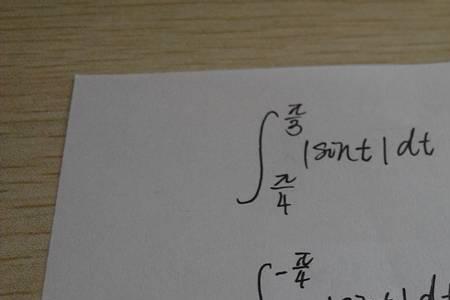 ∫_{π/4}^{π/3} |sint| dt
∫^{-π/4}